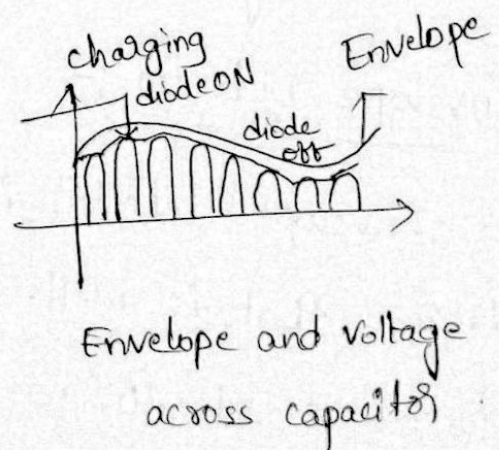 charging
diode ON
Envelope
diode
off
Envelope and voltage
across capacitor